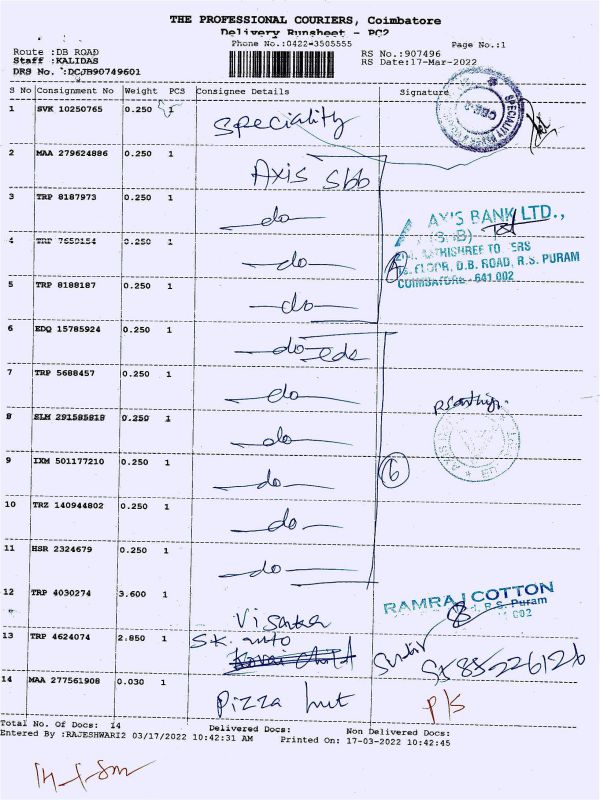 THE PROFESSIONAL COURIERS, Coimbatore
Delivery Runsheet - PC2
Phone No.:0422-3505555 Page No.:1
Route :DB ROAD RS No.:907496
Staff :KALIDAS RS Date:17-Mar-2022
DRS No. :DCJB90749601
S No Consignment No Weight PCS Consignee Details Signature
1 SVK 10250765 0.250 1 Speciality
2 MAA 279624886 0.250 1 Axis Sbb
3 TRP 8187973 0.250 1 do
AXIS BANK LTD.,
4 TRP 7659154 0.250 1 do
FLOOR, D.B. ROAD, R.S. PURAM
COIMBATORE - 641 002
5 TRP 8188187 0.250 1 do
6 EDQ 15785924 0.250 1 do
7 TRP 5688457 0.250 1 do
8 SLM 291585818 0.250 1 do
9 IXM 501177210 0.250 1 do
6
10 TRZ 140944802 0.250 1 do
11 HSR 2324679 0.250 1 do
12 TRP 4030274 3.600 1
RAMRAJ COTTON
R.S. Puram
13 TRP 4624074 2.850 1 S.K. auto
14 MAA 277561908 0.030 1 Pizza hut
Total No. Of Docs: 14 Delivered Docs: Non Delivered Docs:
Entered By :RAJESHWARI2 03/17/2022 10:42:31 AM Printed On: 17-03-2022 10:42:45